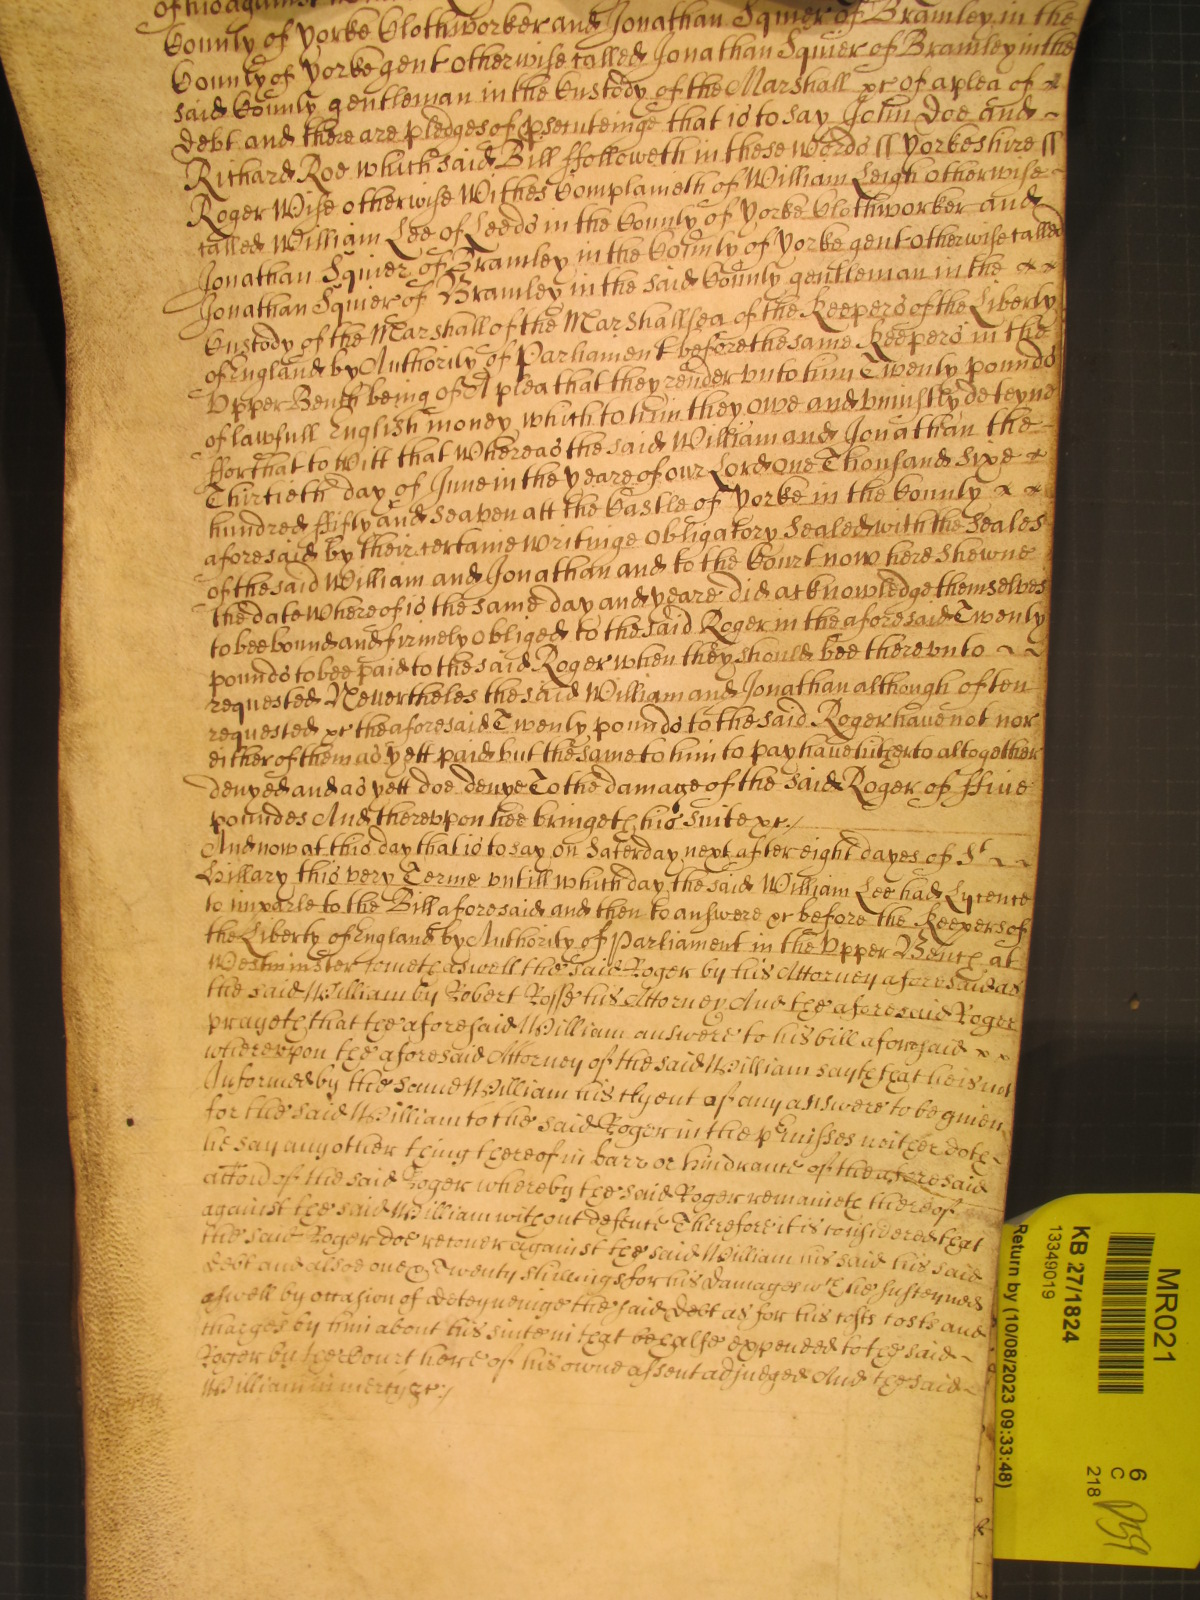 of his against
County of Yorke Clothworker and Jonathan Squier of Bramley in the
County of Yorke gent otherwise called Jonathan Squier of Bramley in the
said County gentleman in the Custody of the Marshall &c of a plea of
debt and there are pledges of psecuteinge that is to say John Doe and
Richard Roe which said Bill ffolloweth in these Words ss Yorkeshire ss
Roger Wise otherwise Withes Complaineth of William Leigh otherwise
called William Lee of Leeds in the County of Yorke Clothworker and
Jonathan Squier of Bramley in the County of Yorke gent otherwise called
Jonathan Squier of Bramley in the said County gentleman in the
Custody of the Marshall of the Marshallsea of the Keepers of the Liberty
of England by Authority of Parliament before the same Keepers in the
Vpper Bench being of A plea that they render vnto him Twenty pounds
of lawfull English money which to him they owe and vniustly deteyne
ffor that to Witt that Whereas the said William and Jonathan the
Thirtieth day of June in the yeare of our Lord One Thousand Sixe
hundred ffifty and Seaven att the Castle of Yorke in the County
aforesaid by their certaine writinge obligatory Sealed with the Seales
of the said William and Jonathan and to the Court now here shewne
the date whereof is the same day and yeare did acknowledge themselves
to bee bound and firmely obliged to the said Roger in the aforesaid Twenty
pounds to bee paid to the said Roger when they should bee therevnto
requested Neuertheles the said William and Jonathan although often
requested &c the aforesaid Twenty pounds to the said Roger haue not nor
either of them as yett paid but the same to him to pay haue hitherto altogether
denyed and as yett doe denye To the damage of the said Roger of ffiue
poundes And therevpon hee bringeth his suite &c./
And now at this day that is to say on Saterday next after eight dayes of St
Hillary this very Terme vntill which day the said William Lee had Lycence
to imparle to the Bill aforesaid and then to answere &c before the Keepers of
the Liberty of England by Authority of Parliament in the Vpper Bench at
Westminster cometh aswell the said Roger by his Attorney aforesaid as
the said William by Robert Rosse his Attorney And the aforesaid Roger
prayeth that the aforesaid William answere to his bill aforesaid
wherevpon the aforesaid Attorney of the said William sayth that he is not
Informed by the same William his Clyent of any answere to be giuen
for the said William to the said Roger in the pmisses neither doth
he say any other thing thereof in barr or hindrance of the aforesaid
accon of the said Roger whereby the said Roger remaineth thereof
against the said William without defence Therefore it is considered that
the said Roger doe recouer against the said William his said
debt and alsoe Twenty shillings for his damages wch he susteyned
aswell by occasion of deteyneinge the said debt as for his costs and
charges by him about his suite in that behalfe expended to the said
Roger by the Court here of his owne assent adjudged And the said
William in mercy &c./
MR021
KB 27/1824
13349019
Return by (10/08/2023 09:33:48)
6
C
218